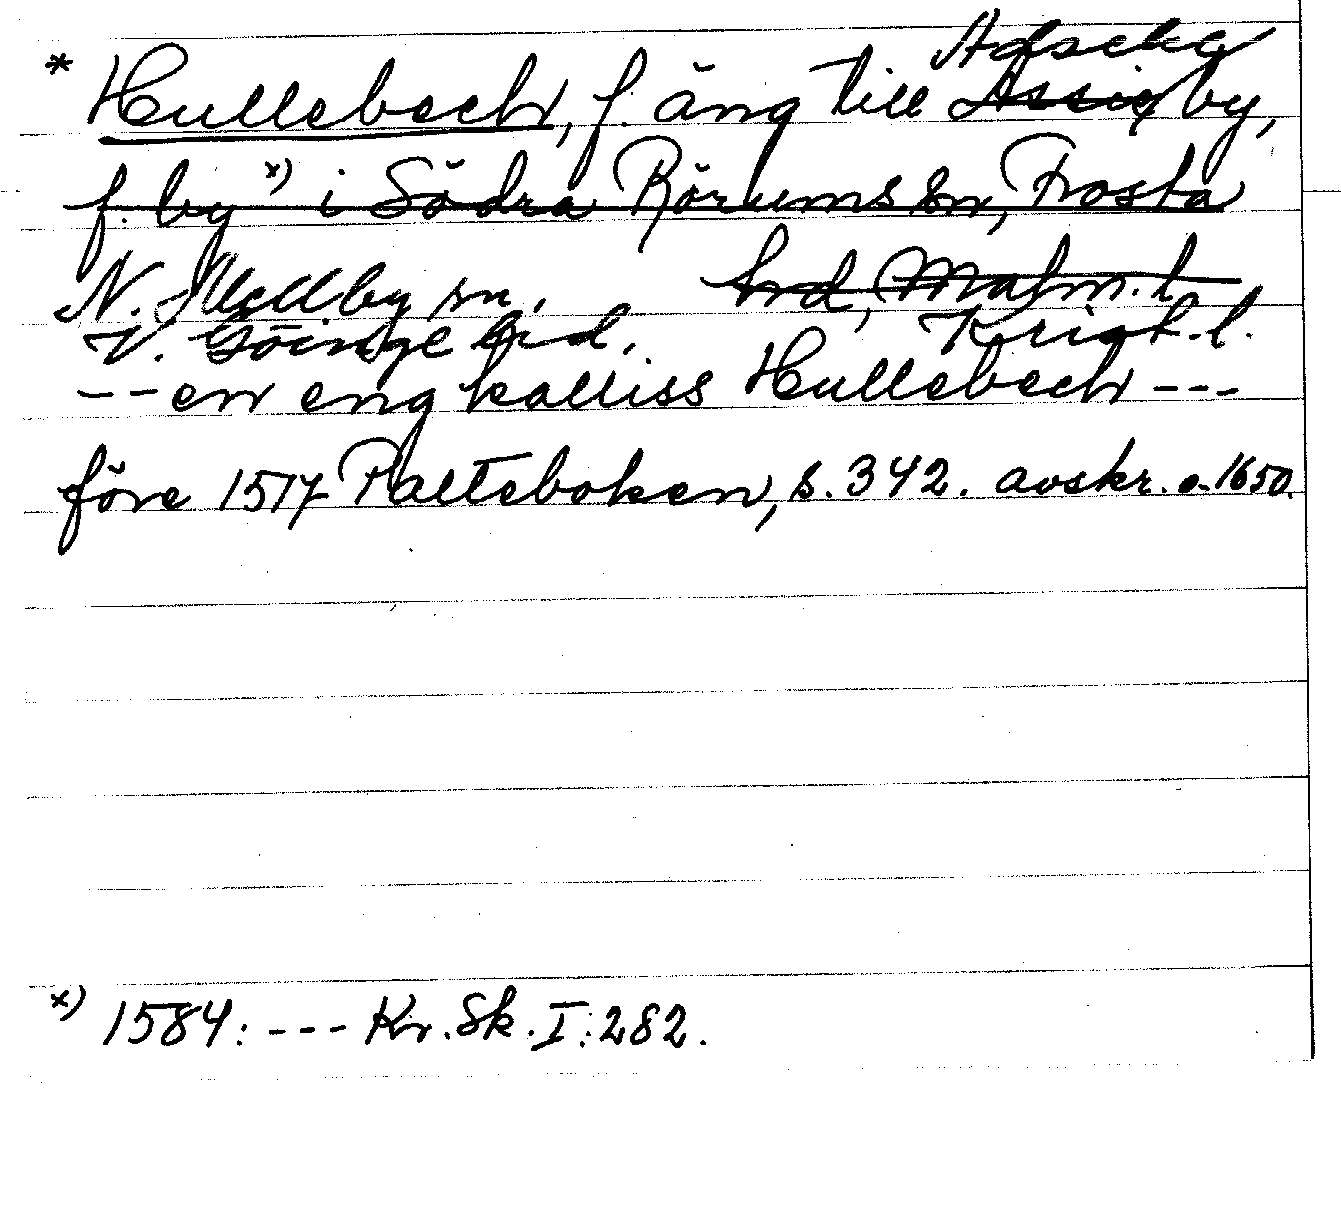 Adseke
* Hullebech, f. äng till Assie by,
f. by x) i Södra Rörums sn, Frosta
N. Mellby sn, hrd, Malm. l
V. Göinge hrd. Krist. l.
-- en eng kalliss Hullebech ---
före 1517 Palteboken, s. 342. avskr. o. 1650.
x) 1584: --- Kr. Sk. I: 282.